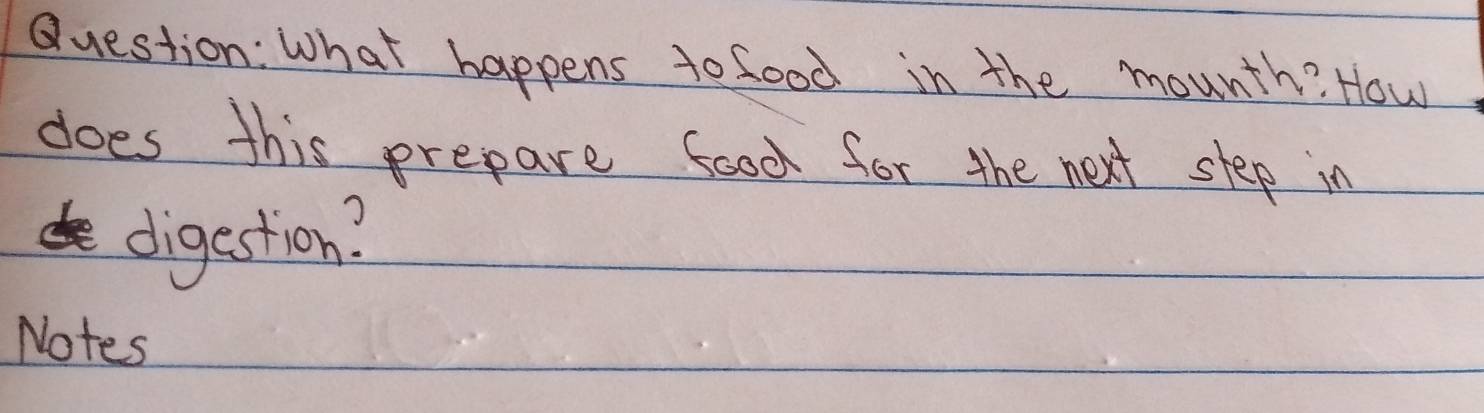 Question: What happens to food in the mounth? How
does this prepare food for the next step in
de digestion?
Notes